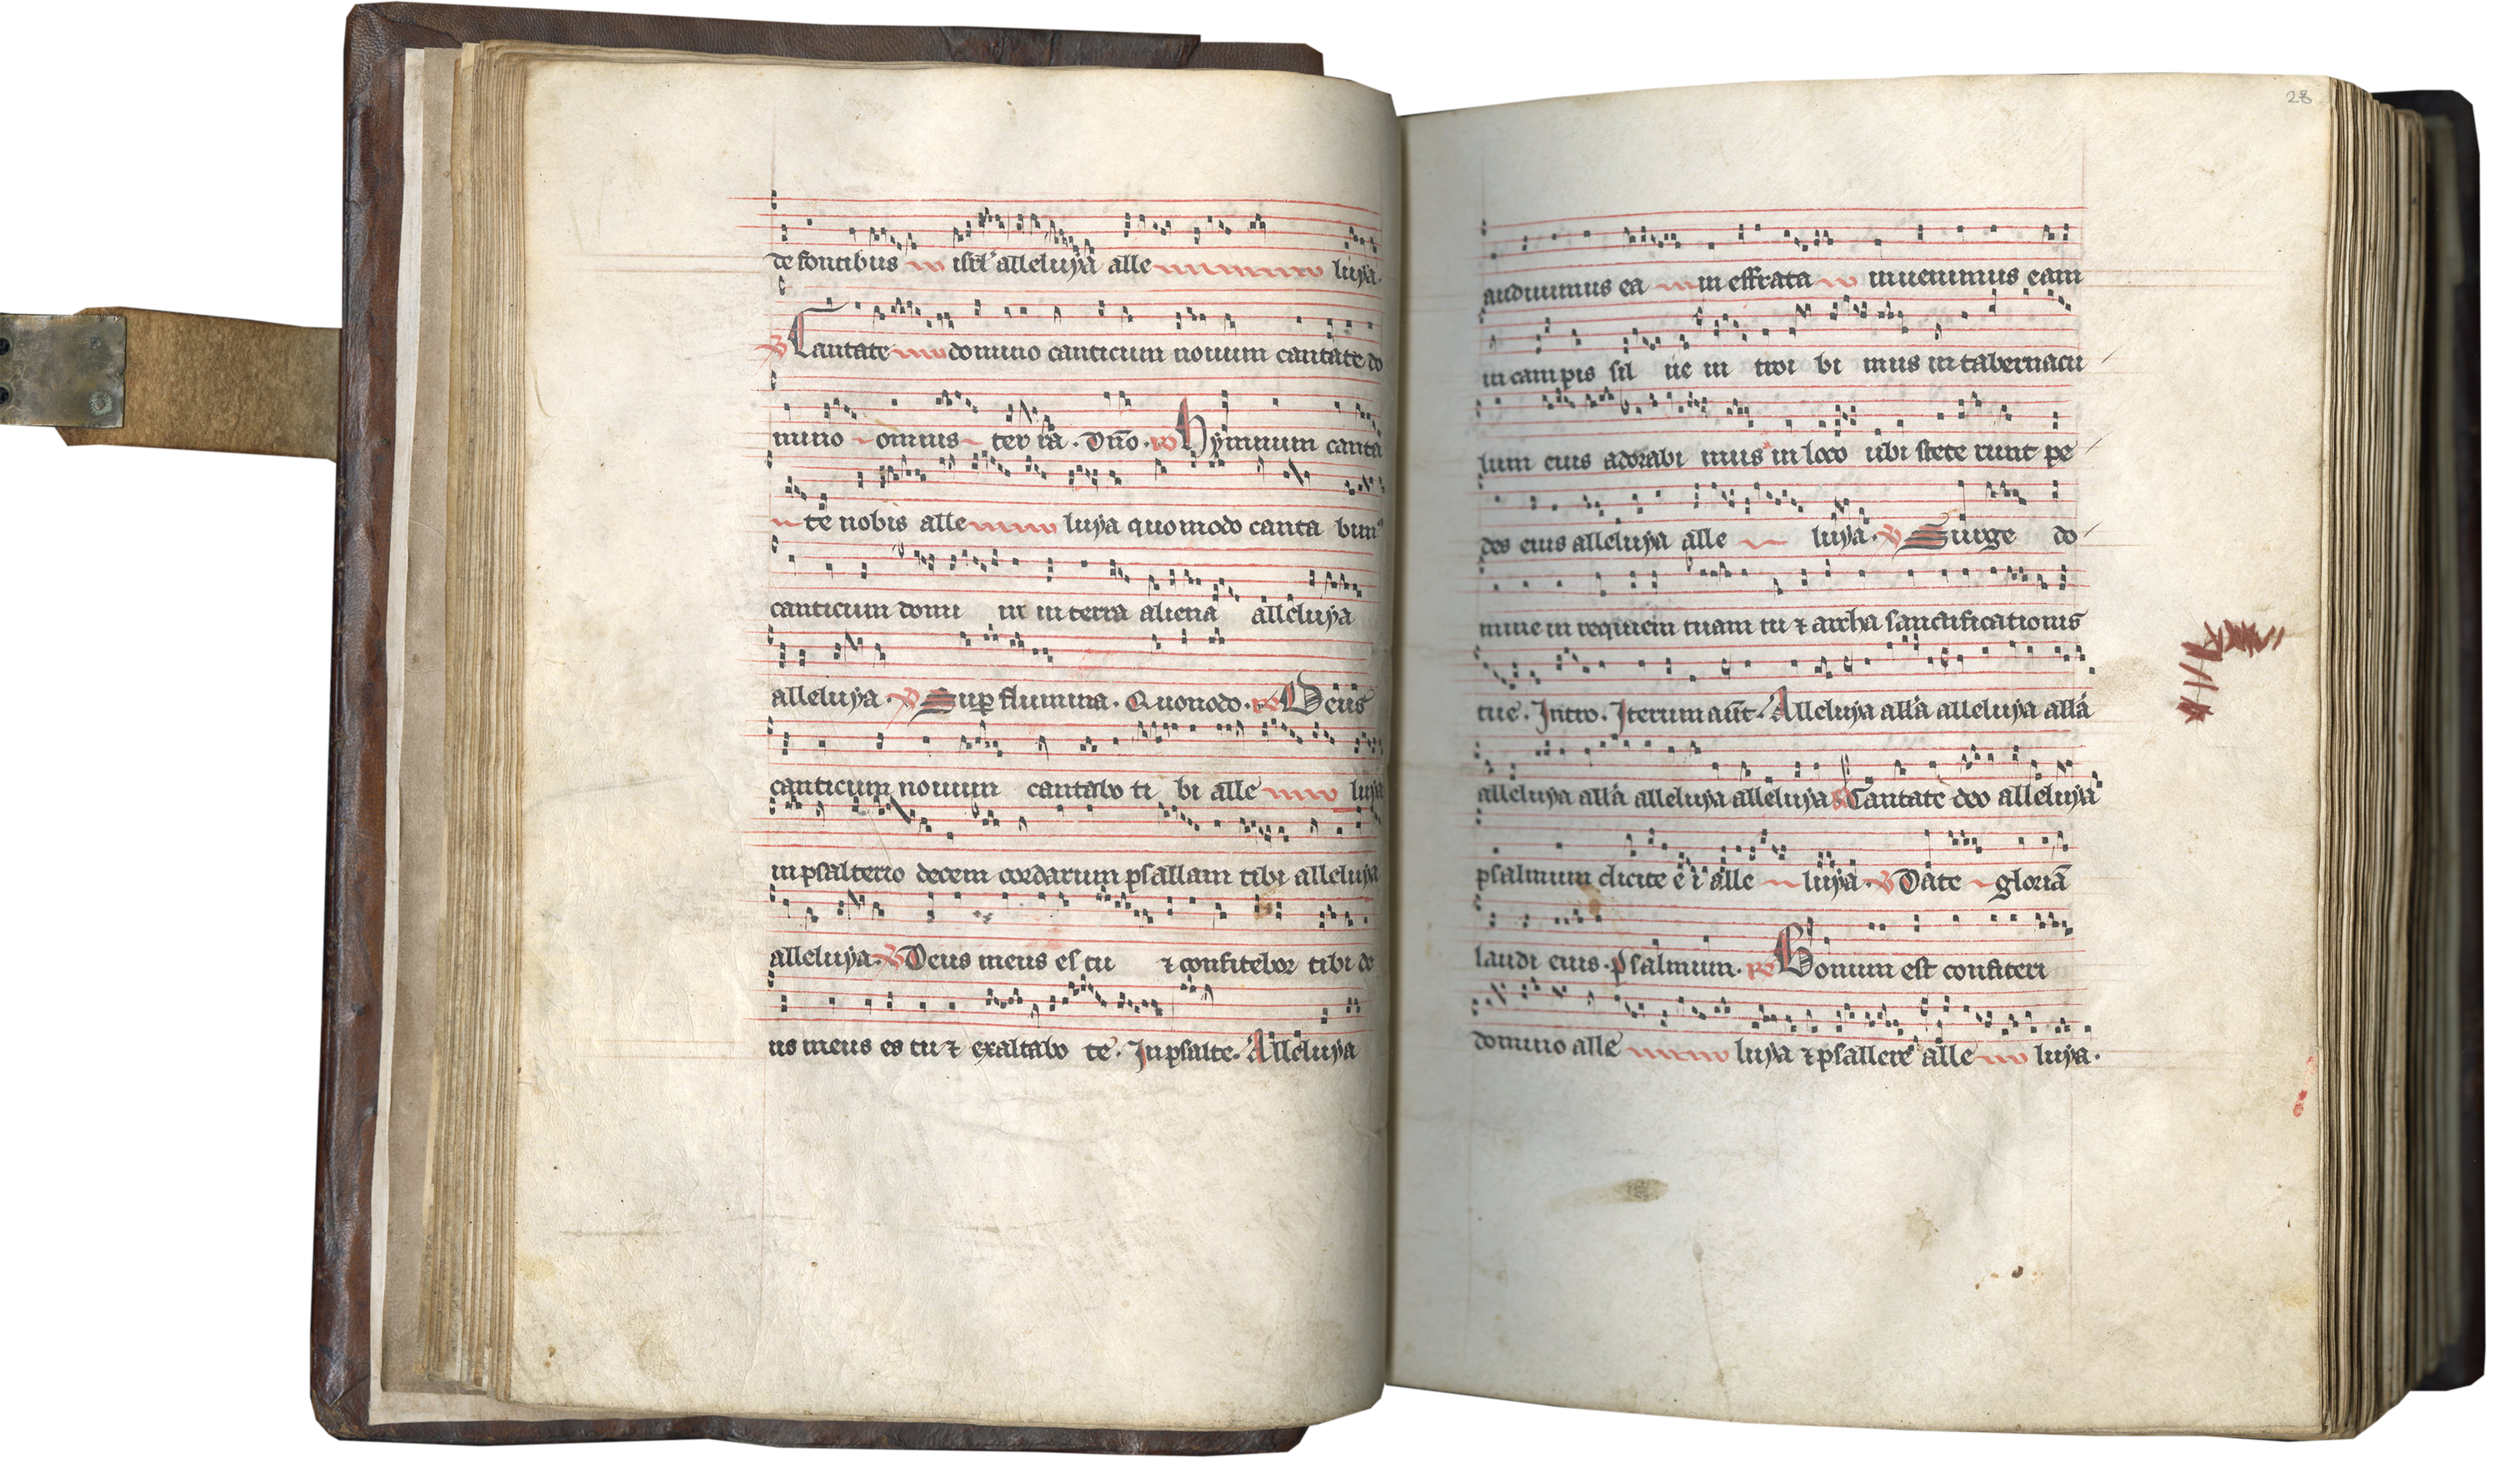 de fontibus isrl' alleluya alle luya.
V Cantate domino canticum nouum cantate do
mino omnis ter ra. Dño. R Hymnum canta
te nobis alle luya quomodo canta bim9
canticum domi ni in terra aliena alleluya
alleluya. V Sup flumina. Quomodo. R Deus
canticum nouum cantabo ti bi alle luya
in psalterio decem cordarum psallam tibi alleluya
alleluya. V Deus meus es tu ⁊ confitebor tibi de
us meus es tu ⁊ exaltabo te. In psalte. Alleluya
28
audiuimus ea in effrata inuenimus eam
in campis sil ue in troi bi mus in tabernacu
lum eius adorabi mus in loco ubi stete runt pe
des eius alleluya alle luya. V Surge do
mine in requiem tuam tu ⁊ archa sanctificationis
tue. Intro. Iterum aut. Alleluya alla alleluya alla
alleluya alla alleluya alleluya R Cantate deo alleluya
psalmum dicite e i alle luya. V Date gloriā
laudi eius. psalmum. R Bonum est confiteri
domino alle luya ⁊ psallere alle luya.